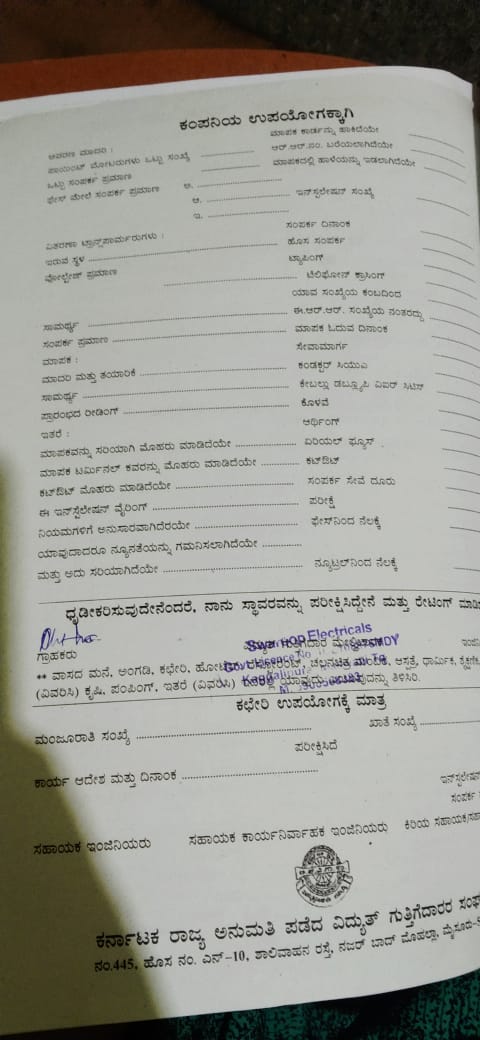 ಕಂಪನಿಯ ಉಪಯೋಗಕ್ಕಾಗಿ
ಮಾಪಕ ಕಾರ್ಡನ್ನು ಹಾಕಿದೆಯೇ
ಆವರಣ ಮಾದರಿ :
ಆರ್.ಆರ್.ನಂ. ಬರೆಯಲಾಗಿದೆಯೇ
ಪಾಯಿಂಟ್ ಮೋಟರುಗಳು ಒಟ್ಟು ಸಂಖ್ಯೆ
ಮಾಪಕದಲ್ಲಿ ಹಾಳೆಯನ್ನು ಇಡಲಾಗಿದೆಯೇ
ಒಟ್ಟು ಸಂಪರ್ಕ ಪ್ರಮಾಣ
ಫೇಸ್ ಮೇಲೆ ಸಂಪರ್ಕ ಪ್ರಮಾಣ ಅ. ....................
ಆ. .................... ಇನ್‌ಸ್ಟಲೇಷನ್ ಸಂಖ್ಯೆ
ಇ. ....................
ಸಂಪರ್ಕ ದಿನಾಂಕ
ವಿತರಣಾ ಟ್ರಾನ್ಸ್‌ಫಾರ್ಮರುಗಳು :
ಇರುವ ಸ್ಥಳ .................... ಹೊಸ ಸಂಪರ್ಕ
ವೋಲ್ಟೇಜ್ ಪ್ರಮಾಣ ಟ್ಯಾಪಿಂಗ್
.................... ಟೆಲಿಫೋನ್ ಕ್ರಾಸಿಂಗ್
ಯಾವ ಸಂಖ್ಯೆಯ ಕಂಬದಿಂದ
ಸಾಮರ್ಥ್ಯ .................... ಈ.ಆರ್.ಆರ್. ಸಂಖ್ಯೆಯ ನಂತರದ್ದು
ಸಂಪರ್ಕ ಪ್ರಮಾಣ .................... ಮಾಪಕ ಓದುವ ದಿನಾಂಕ
ಮಾಪಕ : ಸೇವಾಮಾರ್ಗ
ಮಾದರಿ ಮತ್ತು ತಯಾರಿಕೆ .................... ಕಂಡಕ್ಟರ್ ಸಿಯುಎ
ಸಾಮರ್ಥ್ಯ .................... ಕೇಬಲ್ಲು ಡಬ್ಲ್ಯೂಪಿ ವಿಐರ್
ಪ್ರಾರಂಭದ ರೀಡಿಂಗ್ .................... ಕೊಳವೆ
ಇತರೆ : ಅರ್ಥಿಂಗ್
ಮಾಪಕವನ್ನು ಸರಿಯಾಗಿ ಮೊಹರು ಮಾಡಿದೆಯೇ .................... ಏರಿಯಲ್ ಫ್ಯೂಸ್
ಮಾಪಕ ಟರ್ಮಿನಲ್ ಕವರನ್ನು ಮೊಹರು ಮಾಡಿದೆಯೇ ............ ಕಟ್‌ಔಟ್
ಕಟ್‌ಔಟ್ ಮೊಹರು ಮಾಡಿದೆಯೇ .................... ಸಂಪರ್ಕ ಸೇವೆ ದೂರು
ಈ ಇನ್‌ಸ್ಟಲೇಷನ್ ವೈರಿಂಗ್ .................... ಪರೀಕ್ಷೆ
ನಿಯಮಗಳಿಗೆ ಅನುಸಾರವಾಗಿದೆಯೇ .................... ಫೇಸ್‌ನಿಂದ ನೆಲಕ್ಕೆ
ಯಾವುದಾದರೂ ನ್ಯೂನತೆಯನ್ನು ಗಮನಿಸಲಾಗಿದೆಯೇ ............
ಮತ್ತು ಅದು ಸರಿಯಾಗಿದೆಯೇ .................... ನ್ಯೂಟ್ರಲ್‌ನಿಂದ ನೆಲಕ್ಕೆ
ಧೃಡೀಕರಿಸುವುದೇನೆಂದರೆ, ನಾನು ಸ್ಥಾವರವನ್ನು ಪರೀಕ್ಷಿಸಿದ್ದೇನೆ ಮತ್ತು ರೇಟಿಂಗ್
Electricals
ಗ್ರಾಹಕರು
** ವಾಸದ ಮನೆ, ಅಂಗಡಿ, ಕಛೇರಿ, ಚಲನಚಿತ್ರ ಆಸ್ಪತ್ರೆ, ಧಾರ್ಮಿಕ,
(ವಿವರಿಸಿ) ಕೃಷಿ, ಪಂಪಿಂಗ್, ಇತರೆ (ವಿವರಿಸಿ) ತಿಳಿಸಿರಿ.
ಕಛೇರಿ ಉಪಯೋಗಕ್ಕೆ ಮಾತ್ರ
ಮಂಜೂರಾತಿ ಸಂಖ್ಯೆ .................... ಖಾತೆ ಸಂಖ್ಯೆ ............
ಪರೀಕ್ಷಿಸಿದೆ
ಕಾರ್ಯ ಆದೇಶ ಮತ್ತು ದಿನಾಂಕ ....................
ಸಂಪರ್ಕ
ಸಹಾಯಕ ಇಂಜಿನಿಯರು ಸಹಾಯಕ ಕಾರ್ಯನಿರ್ವಾಹಕ ಇಂಜಿನಿಯರು ಕಿರಿಯ ಸಹಾಯಕ/
ಕರ್ನಾಟಕ ರಾಜ್ಯ ಅನುಮತಿ ಪಡೆದ ವಿದ್ಯುತ್ ಗುತ್ತಿಗೆದಾರರ ಸಂಘ
ನಂ.445, ಹೊಸ ನಂ. ಎನ್-10, ಶಾಲಿವಾಹನ ರಸ್ತೆ, ನಜರ್ ಬಾದ್ ಮೊಹಲ್ಲಾ, ಮೈಸೂರು-